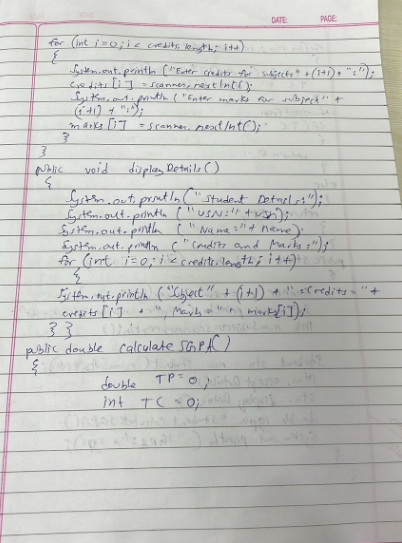 DATE: PAGE:
for (int i=0; i < credits.length; i++)
{
System.out.println ("Enter credits for subjects" + (i+1) + ":");
credits [i] = scanner.nextInt();
System.out.println ("Enter marks for subject" +
(i+1) + ":");
marks [i] = scanner.nextInt();
}
}
public void displayDetails()
{
System.out.println ("Student Details:");
System.out.println ("USN:" + usn);
System.out.println ("Name:" + name);
System.out.println ("Credits and Marks:");
for (int i=0; i < credits.length; i++)
{
System.out.println ("Subject" + (i+1) + ": Credits = " +
credits [i] + ", Marks = " + marks[i]);
} }
public double calculateSGPA()
{
double TP = 0;
int TC = 0;